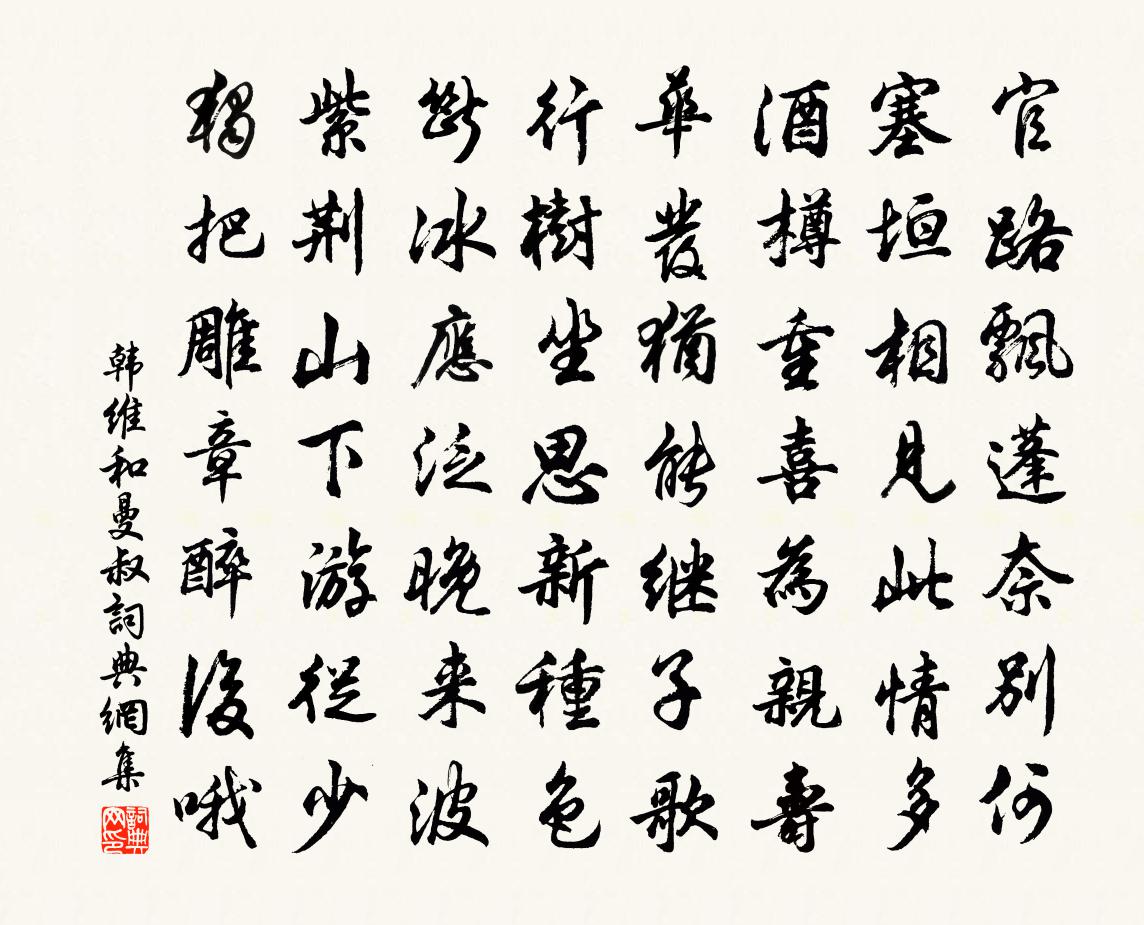 官路飄蓬奈別何
塞垣相見此情多
酒樽重喜為親壽
華發猶能继子歌
行樹坐思新種色
斷冰應泛晚来波
紫荆山下游從少
獨把雕章醉後哦
韩维和曼叔詞典網集
詞典網印